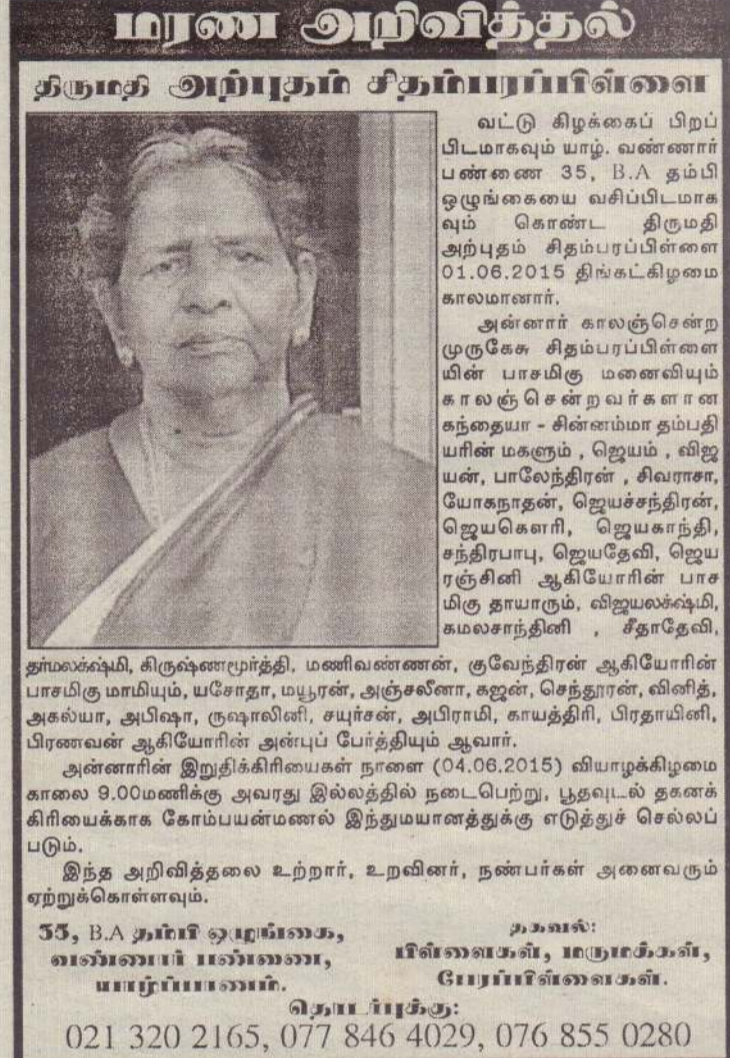 மரண அறிவித்தல்
திருமதி அற்புதம் சிதம்பரப்பிள்ளை
வட்டு கிழக்கைப் பிறப்
பிடமாகவும் யாழ். வண்ணார்
பண்ணை 35, B.A தம்பி
ஒழுங்கையை வசிப்பிடமாக
வும் கொண்ட திருமதி
அற்புதம் சிதம்பரப்பிள்ளை
01.06.2015 திங்கட்கிழமை
காலமானார்.
அன்னார் காலஞ்சென்ற
முருகேசு சிதம்பரப்பிள்ளை
யின் பாசமிகு மனைவியும்
காலஞ்சென்றவர்களான
கந்தையா - சின்னம்மா தம்பதி
யரின் மகளும் , ஜெயம் , விஜ
யன், பாலேந்திரன் , சிவராசா,
யோகநாதன், ஜெயச்சந்திரன்,
ஜெயகௌரி, ஜெயகாந்தி,
சந்திரபாபு, ஜெயதேவி, ஜெய
ரஞ்சினி ஆகியோரின் பாச
மிகு தாயாரும், விஜயலக்ஷ்மி,
கமலசாந்தினி , சீதாதேவி,
தர்மலக்ஷ்மி, கிருஷ்ணமூர்த்தி, மணிவண்ணன், குவேந்திரன் ஆகியோரின்
பாசமிகு மாமியும், யசோதா, மயூரன், அஞ்சலீனா, கஜன், செந்தூரன், வினித்,
அகல்யா, அபிஷா, ருஷாலினி, சயுர்சன், அபிராமி, காயத்திரி, பிரதாயினி,
பிரணவன் ஆகியோரின் அன்புப் பேர்த்தியும் ஆவார்.
அன்னாரின் இறுதிக்கிரியைகள் நாளை (04.06.2015) வியாழக்கிழமை
காலை 9.00மணிக்கு அவரது இல்லத்தில் நடைபெற்று, பூதவுடல் தகனக்
கிரியைக்காக கோம்பயன்மணல் இந்துமயானத்துக்கு எடுத்துச் செல்லப்
படும்.
இந்த அறிவித்தலை உற்றார், உறவினர், நண்பர்கள் அனைவரும்
ஏற்றுக்கொள்ளவும்.
35, B.A தம்பி ஒழுங்கை,
வண்ணார் பண்ணை,
யாழ்ப்பாணம்.
தகவல்:
பிள்ளைகள், மருமக்கள்,
பேரப்பிள்ளைகள்.
தொடர்புக்கு:
021 320 2165, 077 846 4029, 076 855 0280